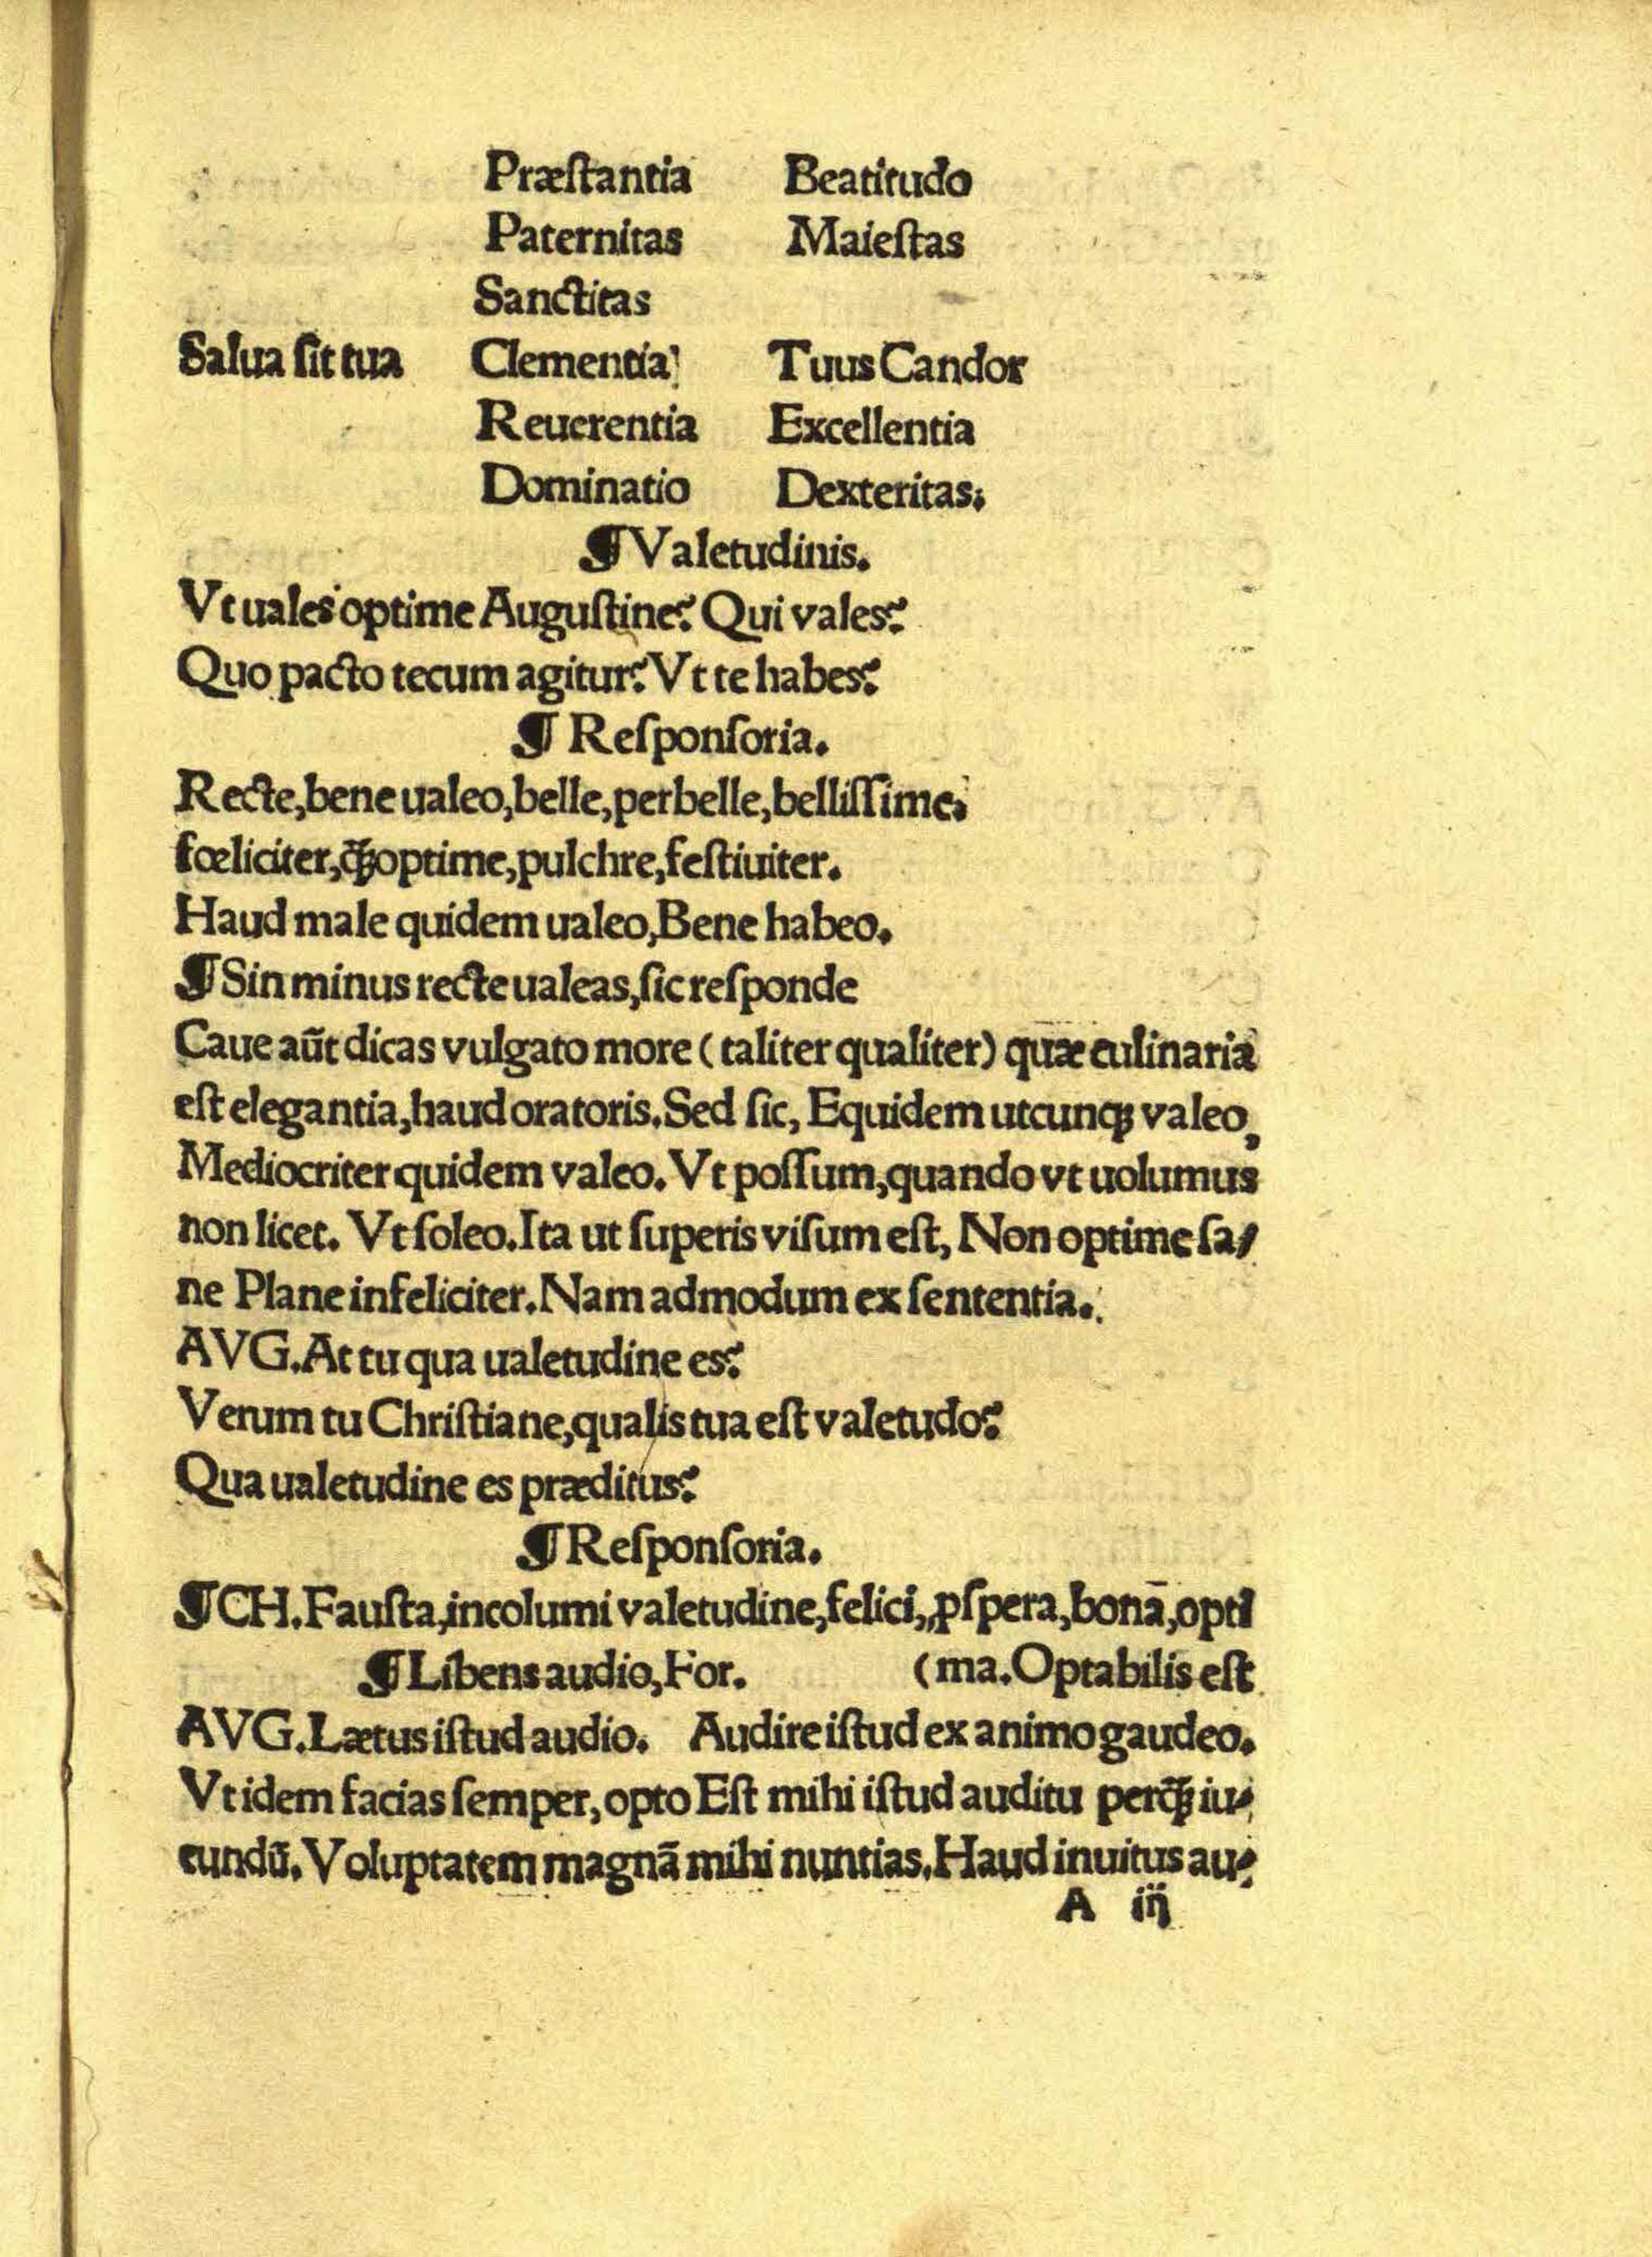 Præſtantia Beatitudo
Paternitas Maieſtas
Sanctitas
Salua ſit tua Clementia Tuus Candor
Reuerentia Excellentia
Dominatio Dexteritas;
¶ Valetudinis.
Vt uales optime Auguſtine? Qui vales?
Quo pacto tecum agitur? Vt te habes?
¶ Reſponſoria.
Recte, bene ualeo, belle, perbelle, belliſſime.
fœliciter, ꝙ̃ optime, pulchre, feſtiuiter.
Haud male quidem ualeo, Bene habeo.
¶ Sin minus recte ualeas, ſic reſponde
Caue aũt dicas vulgato more (taliter qualiter) quæ culinaria
eſt elegantia, haud oratoris. Sed ſic, Equidem utcunqꝫ valeo,
Mediocriter quidem valeo. Vt poſſum, quando vt uolumus
non licet. Vt ſoleo. Ita ut ſuperis viſum eſt, Non optime ſa/
ne Plane infeliciter. Nam admodum ex ſententia.
AVG. At tu qua ualetudine es?
Verum tu Chriſtiane, qualis tua eſt valetudo?
Qua ualetudine es præditus?
¶ Reſponſoria.
¶ CH. Fauſta, incolumi valetudine, felici, ꝓſpera, bona, opti
¶ Libens audio, For. (ma. Optabilis eſt
AVG. Lætus iſtud audio. Audire iſtud ex animo gaudeo.
Vt idem facias ſemper, opto Eſt mihi iſtud auditu perꝙ̃ iu/
cundũ. Voluptatem magnã mihi nuntias. Haud inuitus au/
A iij